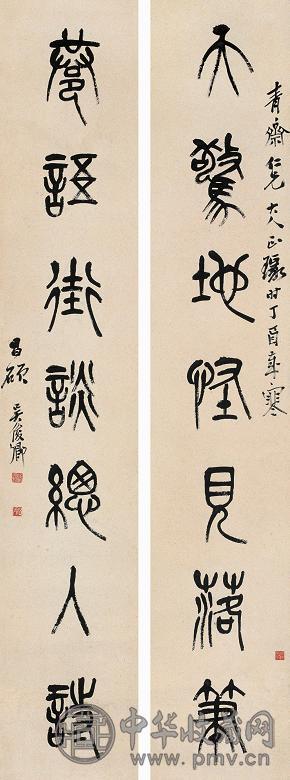 天驚地怪見落筆
青齋仁兄大人正瑑時丁酉歲寒
巷語街談總入詩
昌碩吳俊卿
中华收藏网
www.pmv.cn